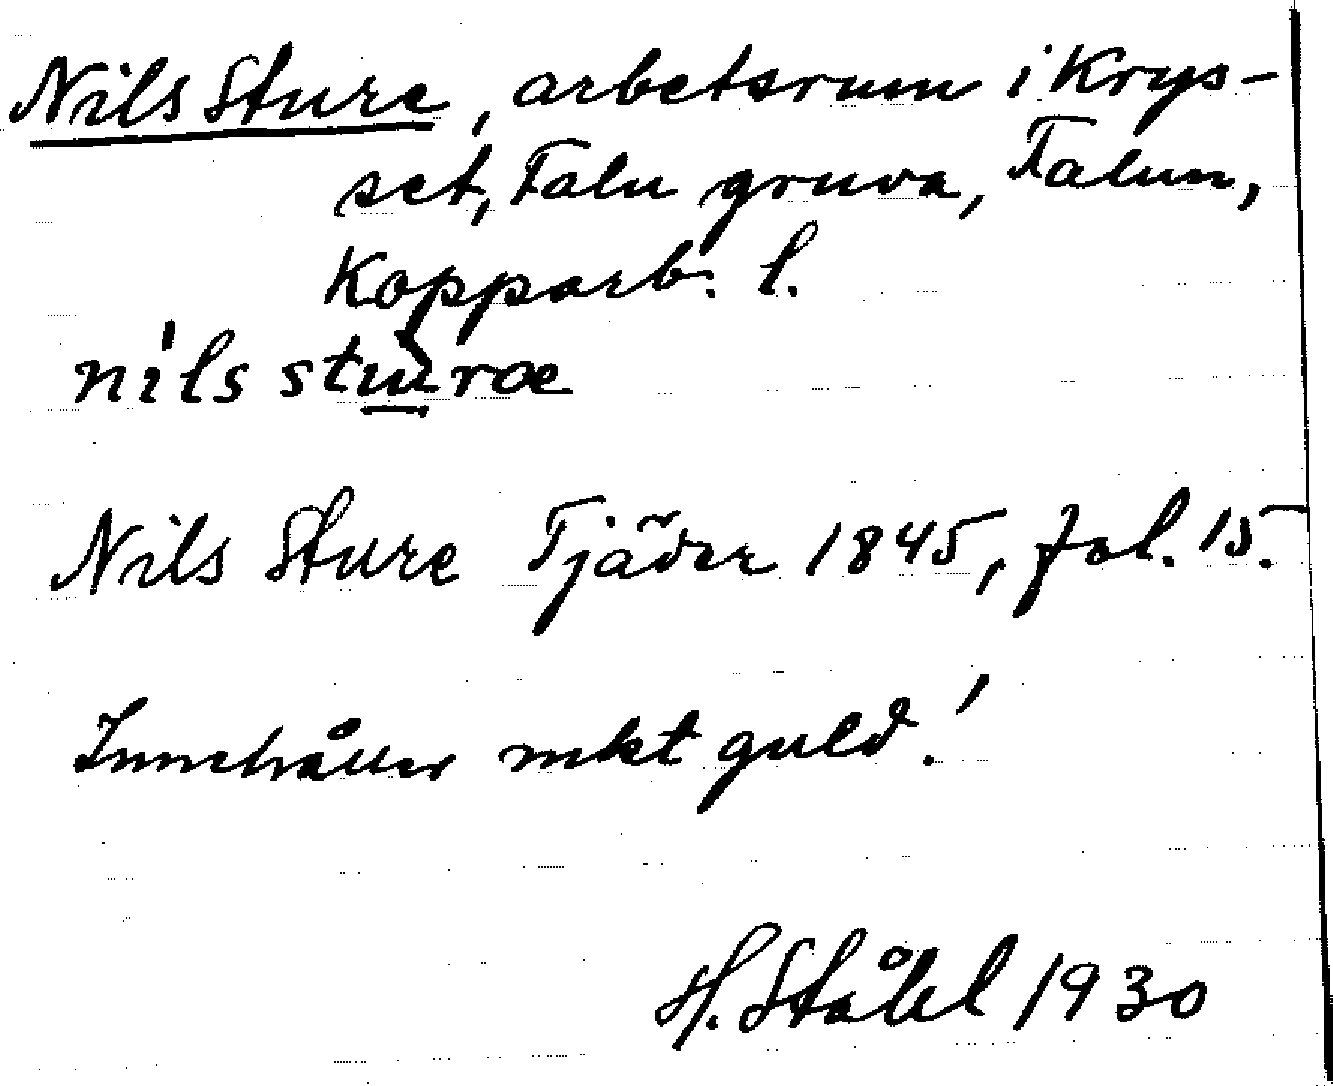 Nils Sture, arbetsrum i Krys-
set, Falu gruva, Falun,
Kopparb. l.
nils stùræ
Nils Sture Tjäder 1845, fol. 15.
Innehåller mkt guld!
H. Ståhl 1930